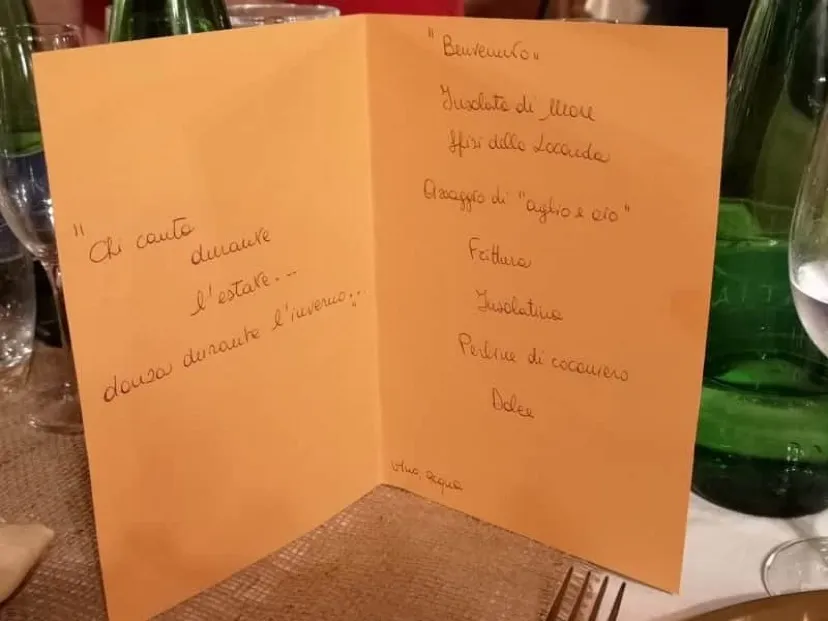 "Chi canta
durante
l'estate...
danza durante l'inverno..."
"Benvenuto"
Insalata di Mare
Sfizi della Locanda
Assaggio di "aglio e oio"
Frittura
Insalatina
Perline di cocomero
Dolce
Vino, acqua